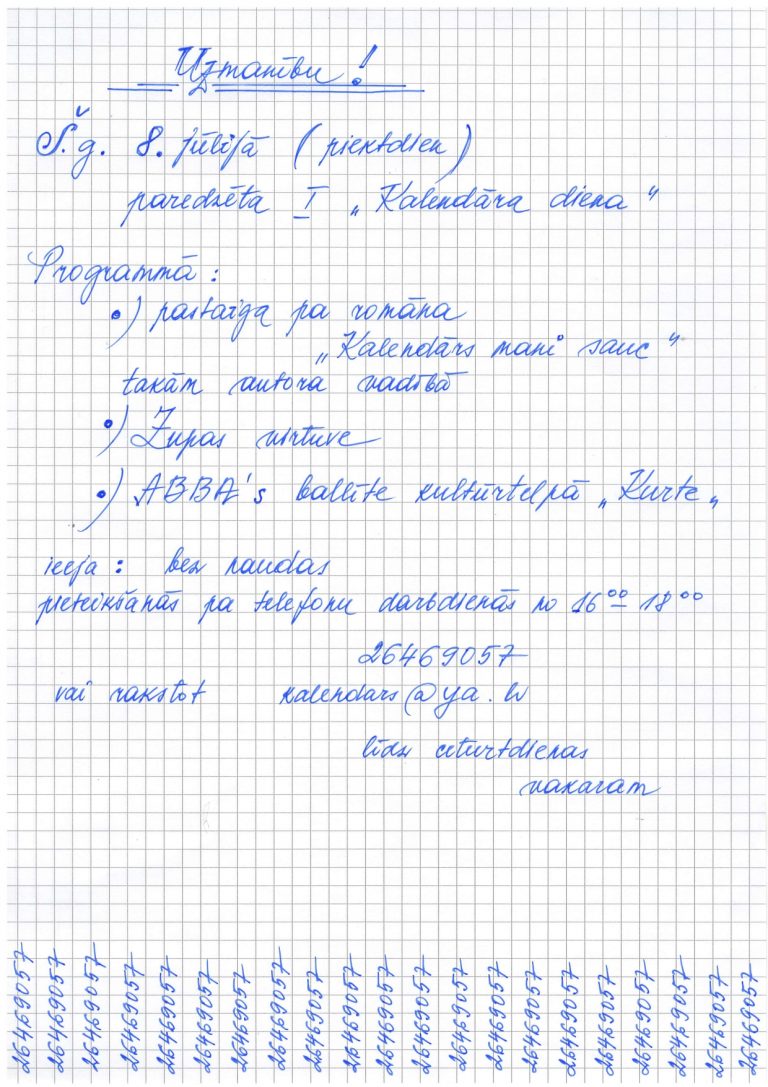 Uzmanību!
Š.g. 8. jūlijā (piektdien)
paredzēta I „Kalendāra diena"
Programmā:
•) pastaiga pa romāna
„Kalendārs mani sauc"
takām autora vadībā
•) Zupas virtuve
•) ABBA's ballīte kultūrtelpā „Kurte„
ieeja: bez naudas
pieteikšanās pa telefonu darbdienās no 16⁰⁰ – 18⁰⁰
26469057
vai rakstot kalendars@ya.lv
līdz ceturtdienas
vakaram
26469057
26469057
26469057
26469057
26469057
26469057
26469057
26469057
26469057
26469057
26469057
26469057
26469057
26469057
26469057
26469057
26469057
26469057
26469057
26469057
26469057